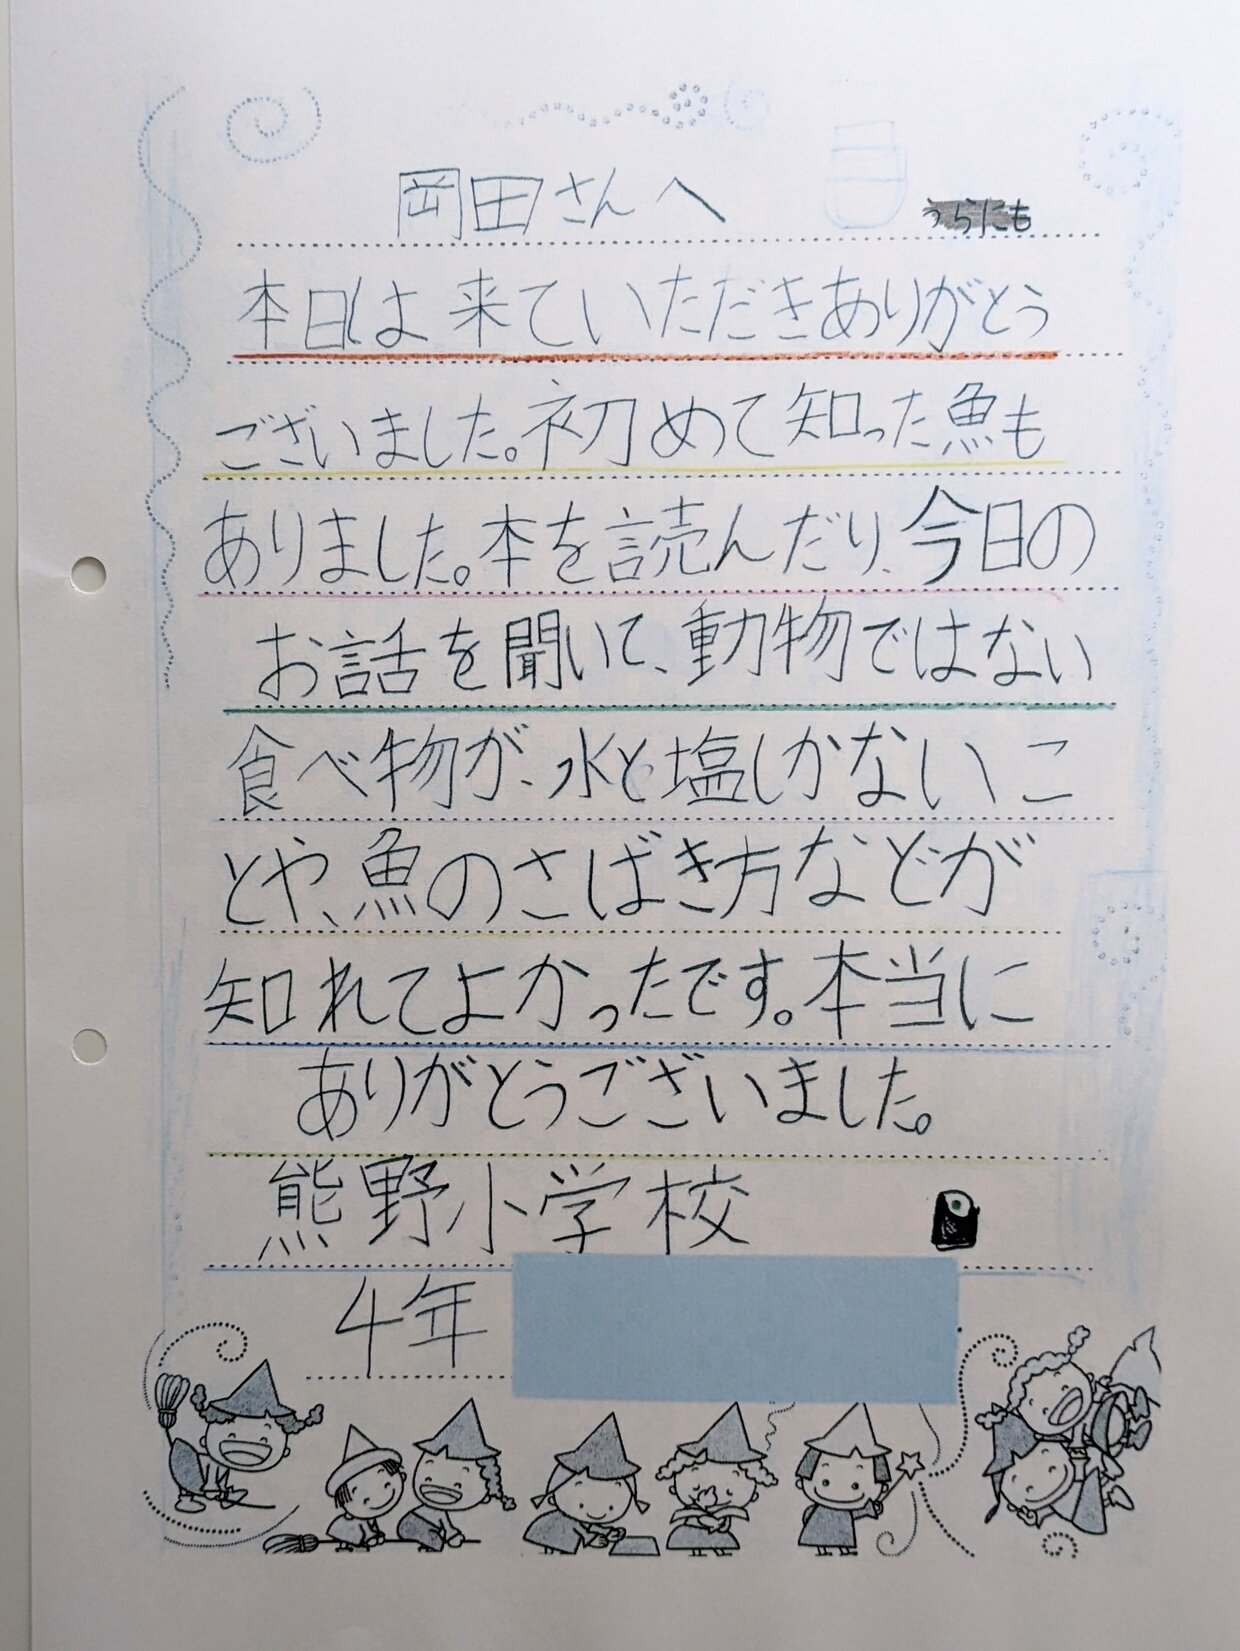 岡田さんへ
うらにも
本日は来ていただきありがとう
ございました。初めて知った魚も
ありました。本を読んだり、今日の
お話を聞いて、動物ではない
食べ物が、水と塩しかないこ
とや、魚のさばき方などが
知れてよかったです。本当に
ありがとうございました。
熊野小学校
4年